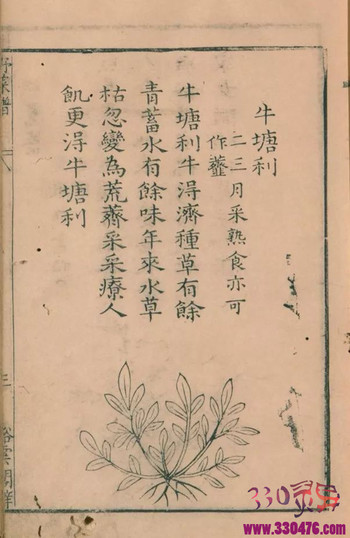 牛塘利
二三月采熟食亦可
作虀
牛塘利牛淂濟種草有餘
青蓄水有餘味年來水草
枯忽變為荒薺采采療人
飢更淂牛塘利
野菜譜
三
330476
www.330476.com